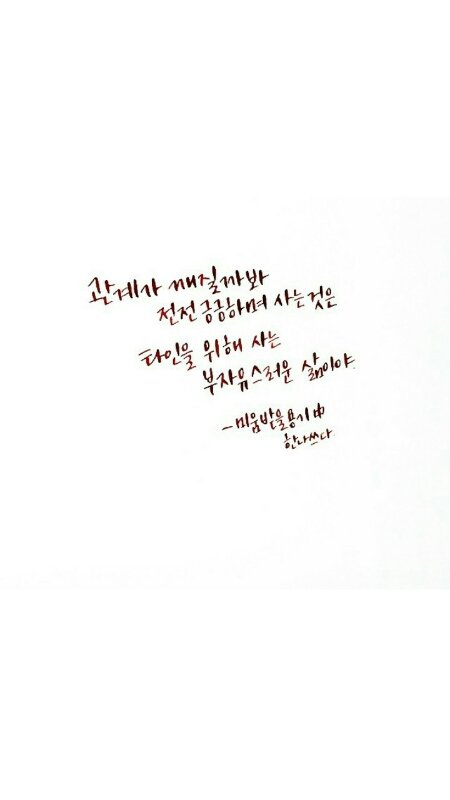 관계가 깨질까봐
전전긍긍하며 사는 것은
타인을 위해 사는
부자유스러운 삶이야.
-미움받을 용기 中
한나쓰다